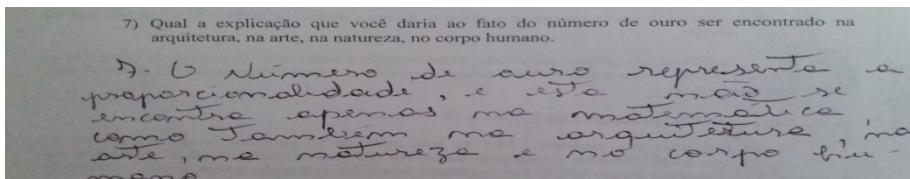 7) Qual a explicação que você daria ao fato do número de ouro ser encontrado na
arquitetura, na arte, na natureza, no corpo humano.
7. O Número de ouro representa a
proporcionalidade, e esta não se
encontra apenas na matemática
como também na arquitetura, na
arte, na natureza e no corpo hu-
mano